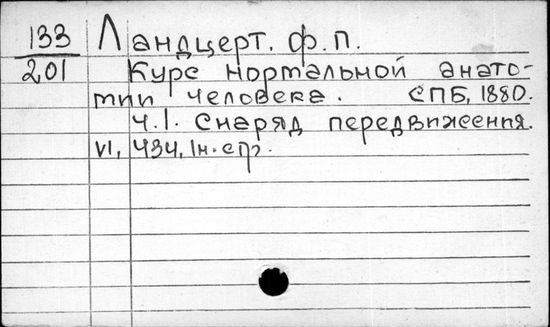 133 Ландцерт. Ф.П.
201 Курс нормальной анато-
мии человека. СПБ, 1880.
Ч.I. Снаряд передвижения.
VI, 434, Iн. стр.